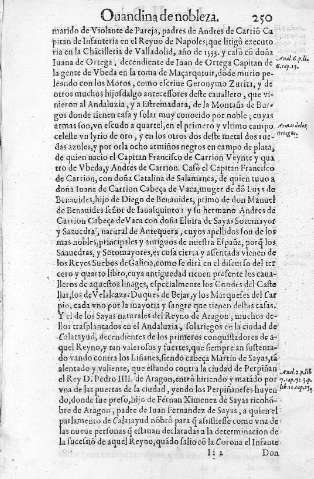 Ouandina de nobleza. 250
marido de Violante de Pareja, padres de Andres de Carriõ Ca
pitan de Infanteria en el Reyno de Napoles, que litigò executo
ria en la Chãcilleria de Valladolid, año de 1553. y casò cõ doña
Juana de Ortega, decendiente de Iuan de Ortega Capitan de
la gente de Vbeda en la toma de Maçarquiuir, dõde murio pe
leando con los Moros, como escriue Geronymo Zurita, y de
otros muchos hijosdalgo antecessores deste cauallero, que vi-
nieron al Andaluzia, y a Estremadura, de la Montaña de Bur
gos donde tienen casa y solar muy conocido por noble, cuyas
armas son, vn escudo a quartel, en el primero y vltimo campo
celeste vn lyrio de oro, y en los otros dos deste metal dos rue-
das azules, y por orla ocho armiños negros en campo de plata,
de quien nacio el Capitan Francisco de Carrion Veynte y qua
tro de Vbeda, y Andres de Carrion. Casò el Capitan Francisco
de Carrion, con doña Catalina de Salamanca, de quien tuuo a
doña Iuana de Carrion Cabeça de Vaca, muger de dõ Luys de
Benauides, hijo de Diego de Benauides, primo de don Manuel
de Benauides señor de Iaualquinto: y su hermano Andres de
Carrion Cabeça de Vaca con doña Eluira de Sayas Sotomayor
y Saauedra, natural de Antequera, cuyos apellidos son de los
mas nobles, principales y antiguos de nuestra España, porq̃ los
Saauedras, y Sotomayores, es cosa cierta y assentada vienen de
los Reyes Sueuos de Galizia, como se dirà en el discurso del ter
cero y quarto libro, cuya antiguedad tienen presente los caua-
lleros de aquestos linages, especialmente los Condes del Caste
llar, los de
pio, cada vno por la mayoria y sangre que tienen destas casas.
Y el de los Sayas naturales del Reyno de Aragon, muchos de-
llos trasplantados en el Andaluzia, solariegos en la ciudad de
Calatayud, decendientes de los primeros conquistadores de a-
quel Reyno, y tan valerosos y fuertes, que siempre an sustenta-
do vando contra los Liñanes, siendo cabeça Martin de Sayas, tã
alentado y valiente, que estando contra la ciudad de Perpiñan
el Rey D. Pedro IIII. de Aragon, entrò hiriendo y matãdo por
vna de las puertas de la ciudad, yendo los Perpiñaneses huyen
do, donde fue preso, hijo de Fernan Ximenez de Sayas ricohõ-
bre de Aragon, padre de Iuan Fernandez de Sayas, a quien el
parlamento de Calatayud nõbrò para q̃ assistiesse como vna de
las nueue personas q̃ estauan declaradas a la determinacion de
la sucessiõ de aquel Reyno, quãdo saliò cõ la Corona el Infante
Ii 2 Don